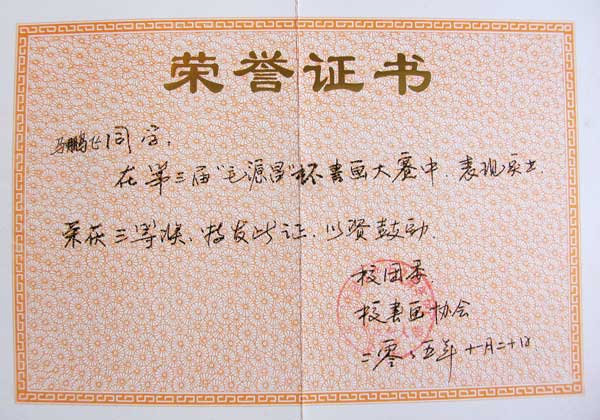 荣誉证书
马鹏飞同学：
在第三届"毛源昌"杯书画大赛中，表现突出，
荣获三等奖，特发此证，以资鼓励.
校团委
校书画协会
二零零五年十一月二十日